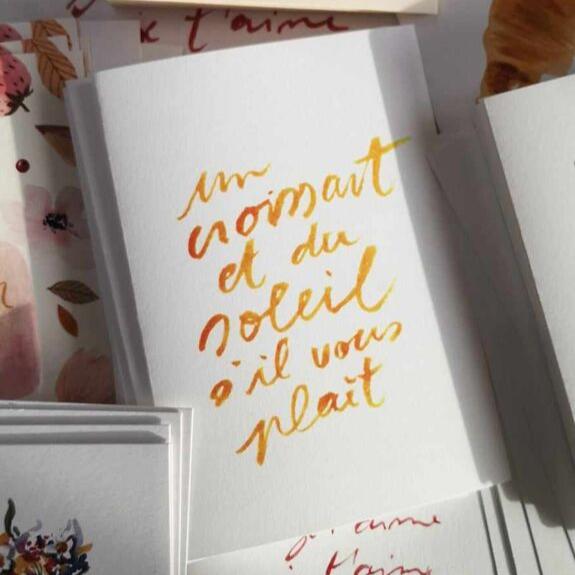 t'aime
un
croissant
et du
soleil
s'il vous
plaît
t'aime
t'aime